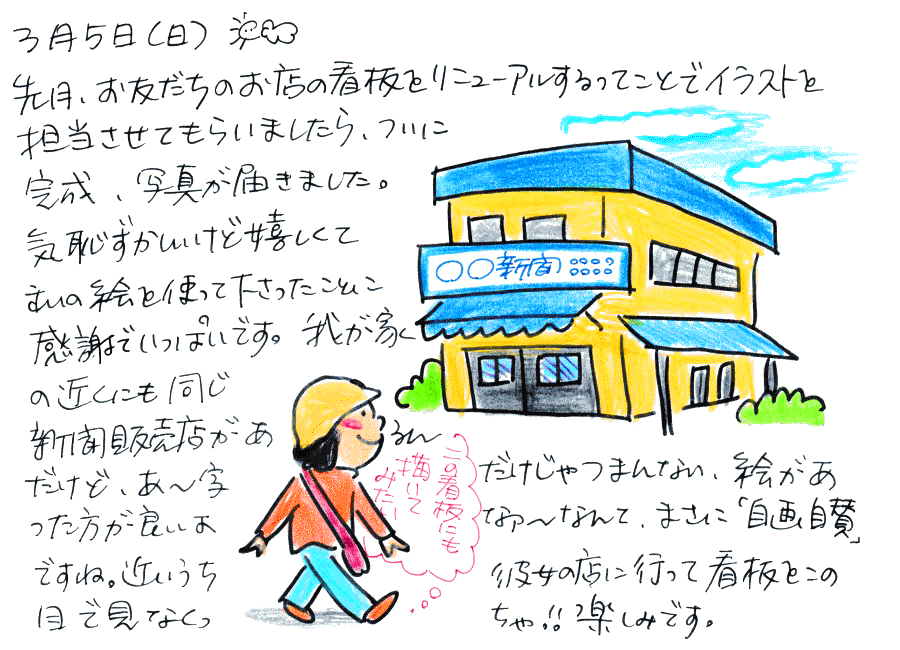 3月5日(日)
先月、お友だちのお店の看板をリニューアルするってことでイラストを
担当させてもらいましたら、ついに
完成、写真が届きました。
気恥ずかしいけど嬉しくて
むいの絵を使って下さったことに
感謝でいっぱいです。我が家
の近くにも同じ
新聞販売店があ るん
だけど、あ〜字 だけじゃつまんない、絵があ
った方が良いよ なぁ〜なんて、まさに「自画自賛」
ですね。近いうち 彼女の店に行って看板をこの
目で見なくっ ちゃ!!楽しみです。
〇〇新聞
この看板にも
描いて
みたい